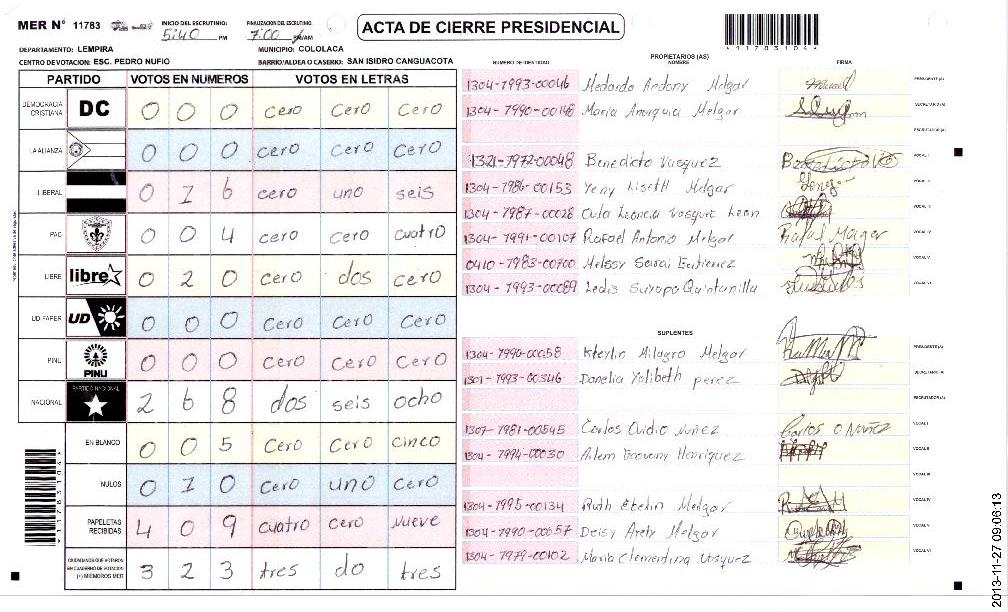 MER N° 11783 INICIO DEL ESCRUTINIO: 5:40 PM FINALIZACION DEL ESCRUTINIO: 7:00 PM/AM
ACTA DE CIERRE PRESIDENCIAL
11783104
DEPARTAMENTO: LEMPIRA MUNICIPIO: COLOLACA
CENTRO DE VOTACION: ESC. PEDRO NUFIO BARRIO/ALDEA O CASERIO: SAN ISIDRO CANGUACOTA
PARTIDO VOTOS EN NUMEROS VOTOS EN LETRAS
DEMOCRACIA CRISTIANA DC 0 0 0 cero cero cero
LA ALIANZA 0 0 0 cero cero cero
LIBERAL 0 1 6 cero uno seis
PAC 0 0 4 cero cero cuatro
LIBRE libre 0 2 0 cero dos cero
UD FAPER UD 0 0 0 cero cero cero
PINU PINU 0 0 0 cero cero cero
NACIONAL PARTIDO NACIONAL 2 6 8 dos seis ocho
EN BLANCO 0 0 5 cero cero cinco
NULOS 0 1 0 cero uno cero
PAPELETAS RECIBIDAS 4 0 9 cuatro cero nueve
CIUDADANOS QUE VOTARON EN CUADERNO DE VOTACION (+) MIEMBROS MER 3 2 3 tres do tres
PROPIETARIOS (AS)
NUMERO DE IDENTIDAD NOMBRE FIRMA
1304-1993-00046 Medardo Andony Melgar PRESIDENTE (A)
1304-1990-00148 Maria Melgar SECRETARIO (A)
ESCRUTADOR (A)
1321-1972-00048 Benedicto Vasquez VOCAL I
1304-1986-00153 Yeny Liseth Melgar VOCAL II
1304-1987-00028 Leoncia Vasquez Leon VOCAL III
1304-1991-00107 Rafael Antonio Melgar VOCAL IV
0410-1983-00700 Melssy Sarai Gutierrez VOCAL V
1304-1993-00089 Ledis Suyapa Quintanilla VOCAL VI
SUPLENTES
1304-1990-00058 Milagro Melgar PRESIDENTE (A)
1301-1993-00346 Danelia Yolibeth perez SECRETARIO (A)
ESCRUTADOR (A)
1307-1981-00545 Carlos Ovidio Nuñez Carlos O Nuñez VOCAL I
1304-1994-00030 Henriquez VOCAL II
VOCAL III
1304-1995-00134 Ruth Ebelin Melgar VOCAL IV
1304-1990-00057 Deisy Arely Melgar VOCAL V
1304-1979-00102 Maria Clementina Vasquez VOCAL VI
11783104
2013-11-27 09:06:13